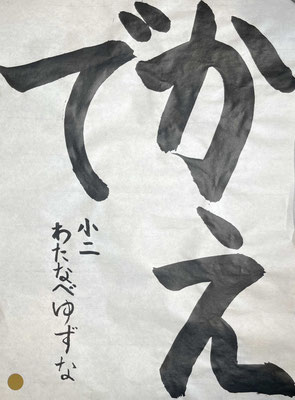 かえ
で
小二
わたなべゆずな